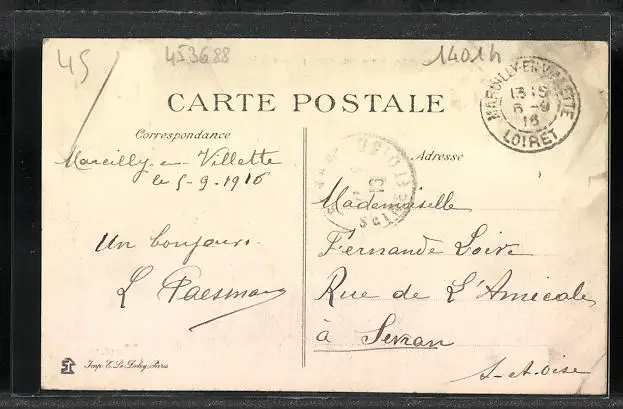 45
453688
1401h
MARCILLY-EN-VILLETTE
13 15
6 -9
16
LOIRET
CARTE POSTALE
Correspondance
Adresse
Marcilly-en-Villette
le 5-9-1916
Un bonjour.
L
Mademoiselle
Fernande Loire
Rue de L'Amicale
à Sevran
S-et-Oise
Imp. E. Le Deley, Paris